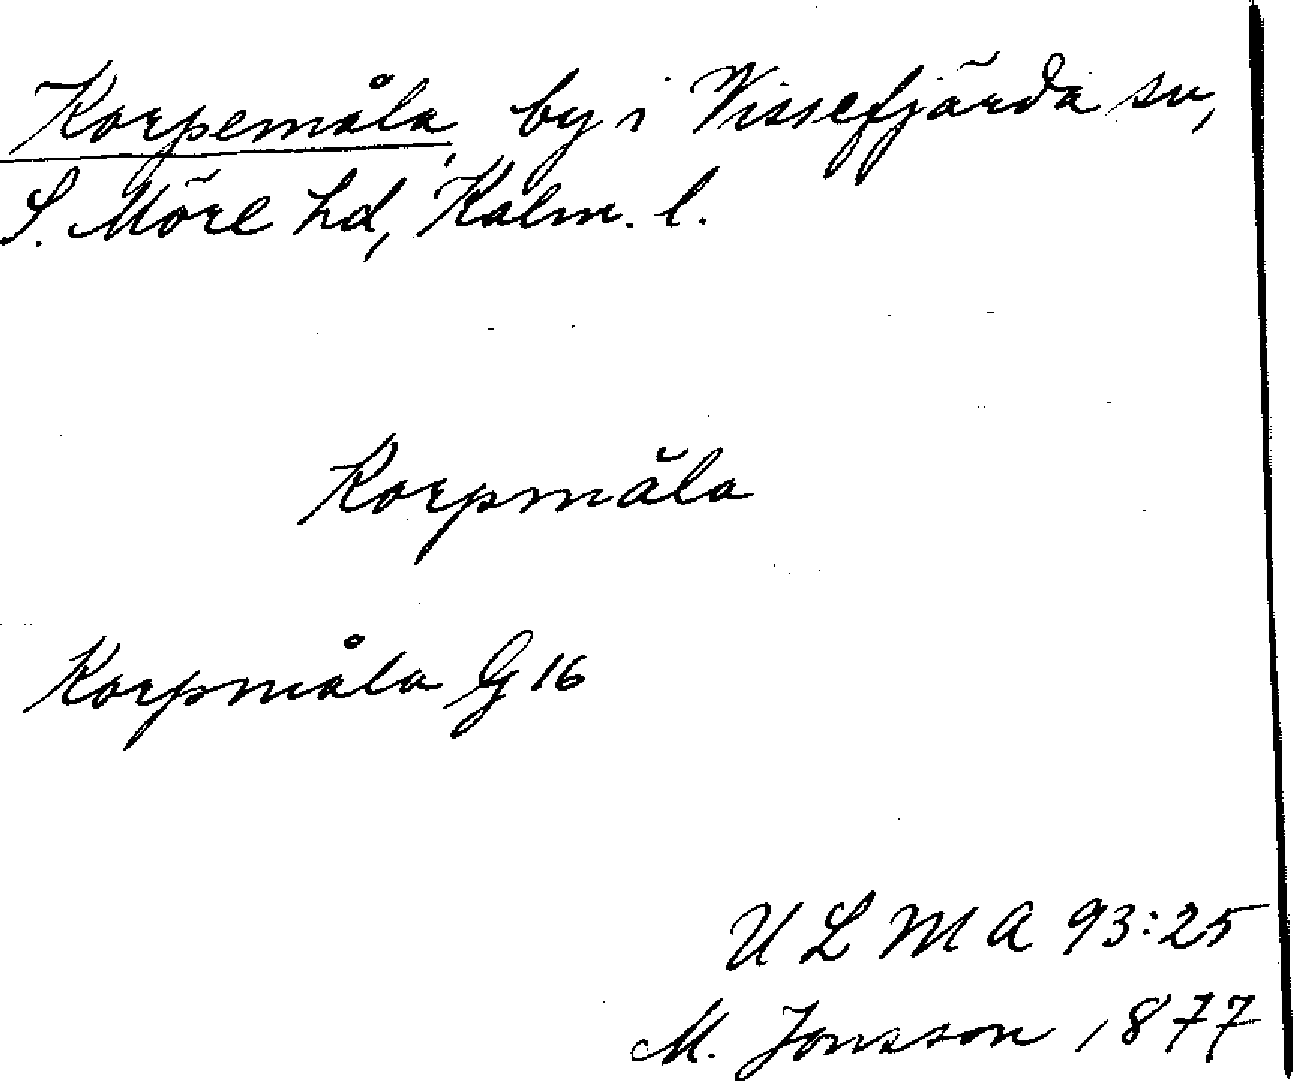 Korpemåla, by i Vissefjärda sn,
S. Möre hd, Kalm. l.
Korpmåla
Korpmåla G 16
U L M A 93:25
M. Jonsson 1877